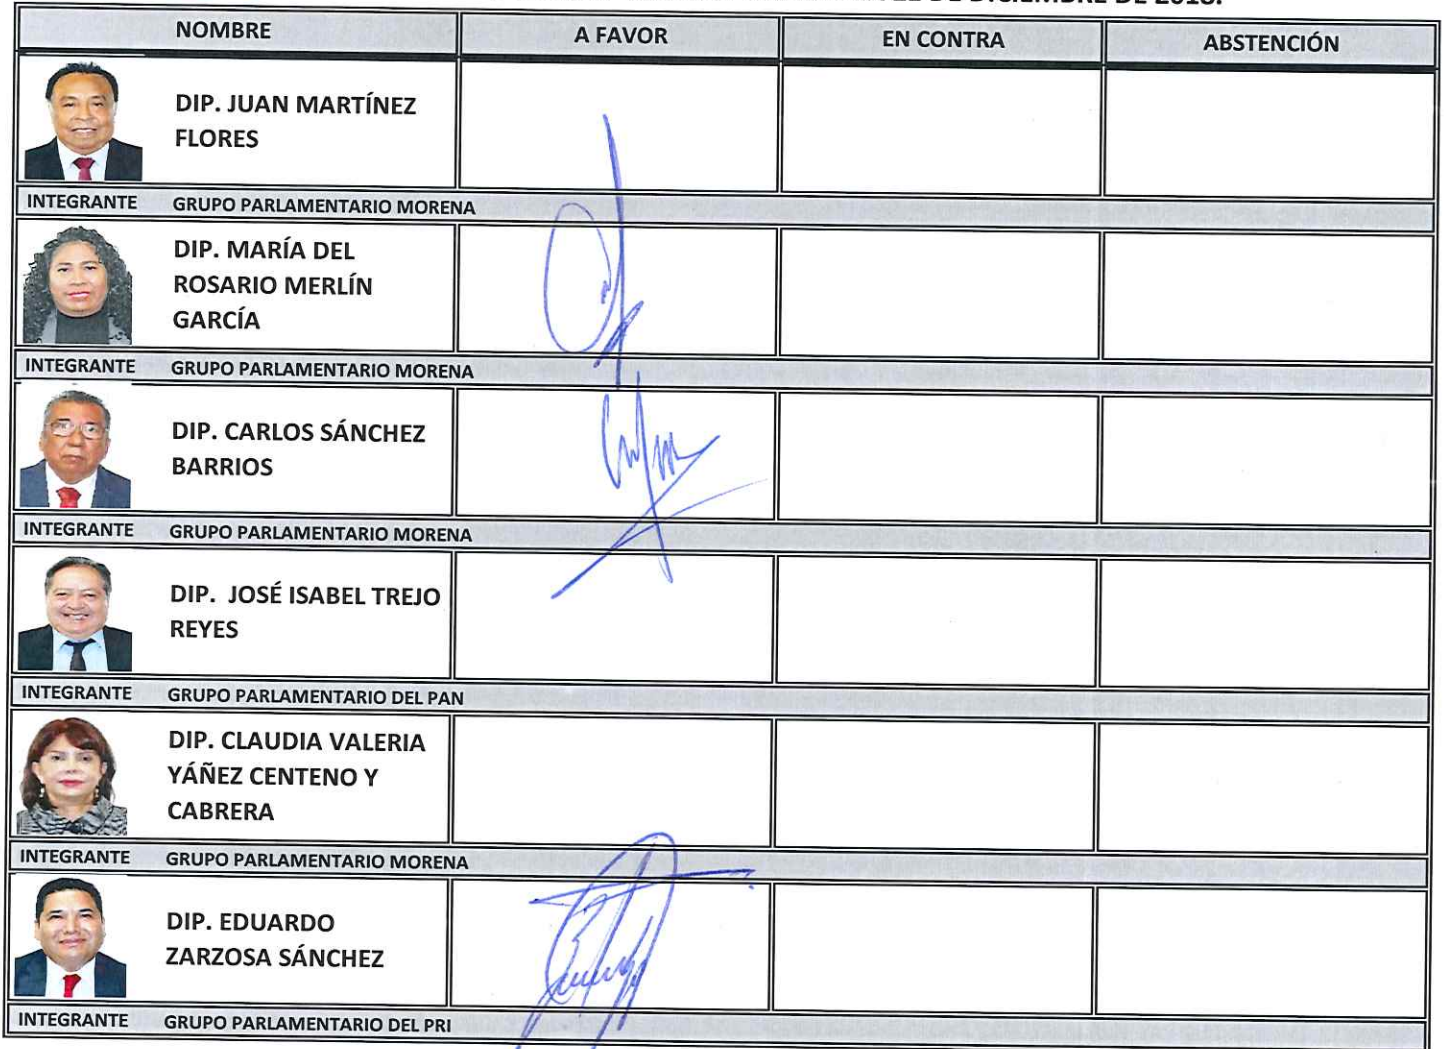 DE DICIEMBRE DE 2018.
NOMBRE A FAVOR EN CONTRA ABSTENCIÓN
DIP. JUAN MARTÍNEZ
FLORES
INTEGRANTE GRUPO PARLAMENTARIO MORENA
DIP. MARÍA DEL
ROSARIO MERLÍN
GARCÍA
INTEGRANTE GRUPO PARLAMENTARIO MORENA
DIP. CARLOS SÁNCHEZ
BARRIOS
INTEGRANTE GRUPO PARLAMENTARIO MORENA
DIP. JOSÉ ISABEL TREJO
REYES
INTEGRANTE GRUPO PARLAMENTARIO DEL PAN
DIP. CLAUDIA VALERIA
YÁÑEZ CENTENO Y
CABRERA
INTEGRANTE GRUPO PARLAMENTARIO MORENA
DIP. EDUARDO
ZARZOSA SÁNCHEZ
INTEGRANTE GRUPO PARLAMENTARIO DEL PRI